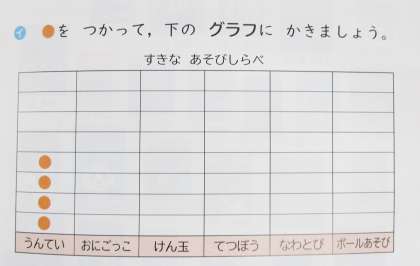 イ ●を つかって，下の グラフに かきましょう。
すきな あそびしらべ
うんてい おにごっこ けん玉 てつぼう なわとび ボールあそび